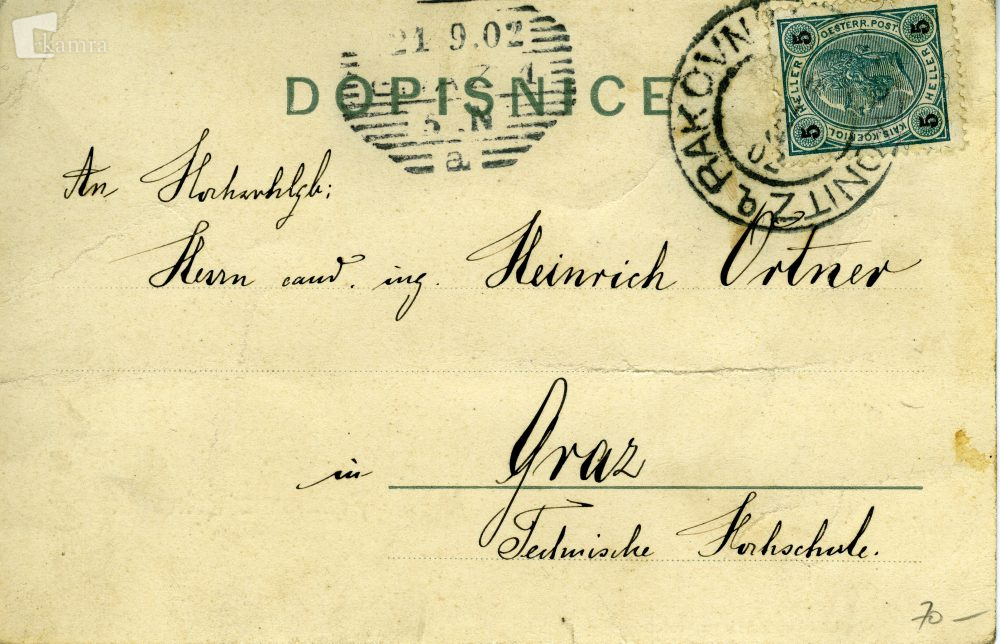 kamra
21 9.02
DOPISNICE
5 N
a
a RAKOVN
ONITZ
5 5
OESTERR.POST.
HELLER HELLER
KAIS.KOENIGL
5 5
An Hochwohlgb:
Herrn cand. ing. Heinrich Ortner
in Graz
Technische Hochschule.
70 —